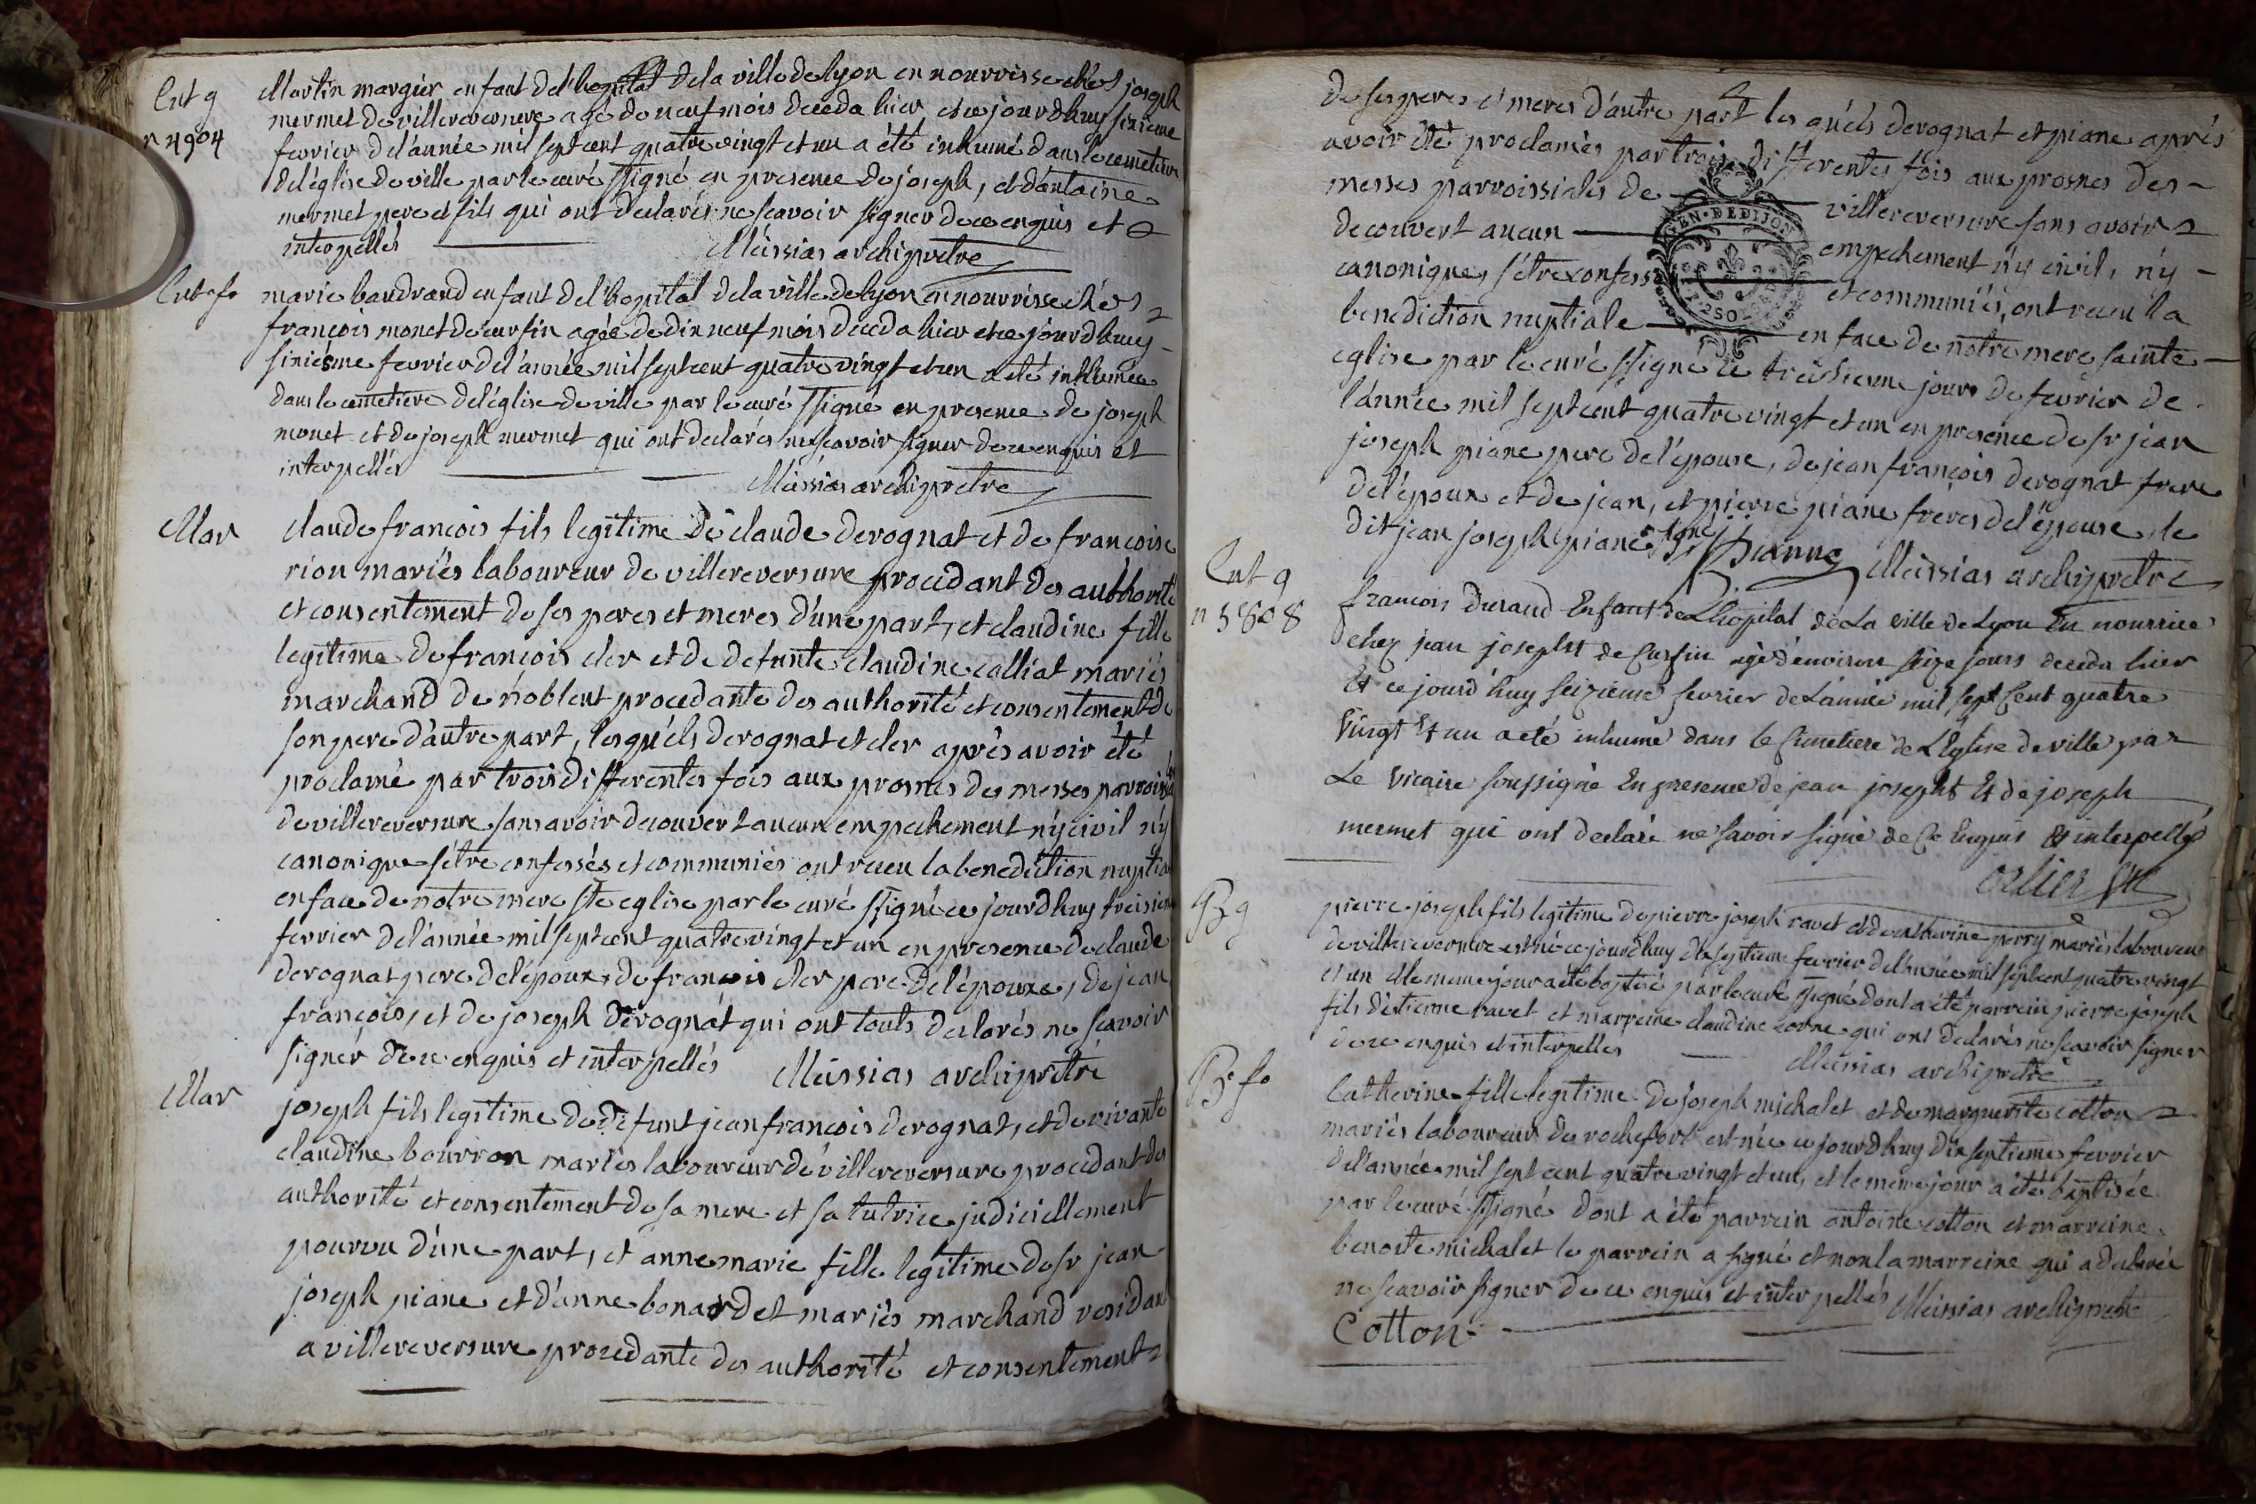 Ent g
n 4904
Martin margier enfant del'hopital dela ville de lyon en nourrisse chés joseph
mermet de villereversure agé de neuf mois deceda hier, et ce jourd'huy sixieme
fevrier del'année mil sept cent quatre vingt et un a été inhumé dans le cemetiere
del'église de ville par le curé ssigné en presence de joseph, et d'antoine
mermet pere et fils qui ont declarés ne scavoir signer de ce enquis et
interpellés Meissias archipretre
Ent fe
marie baudrand enfant del'hopital dela ville de lyon en nourrisse chés
françois monet de cursin agée de dix neuf mois deceda hier et ce jourd'huy
sixiesme fevrier del'année mil sept cent quatre vingt et un a été inhumée
dans le cemetiere del'église de ville par le curé ssigné en presence de joseph
monet et de joseph mermet qui ont declarés ne scavoir signer de ce enquis et
interpellés Meissias archipretre
Mar
claude françois fils legitime de claude derognat et de françoise
rion mariés laboureur de villereversure procedant des authorité
et consentement de ses peres et meres d'une part, et claudine fille
legitime de françois cler et de defunte claudine calliat mariés
marchand de noblent procedante des authorité et consentement de
son pere d'autre part, lesquéls derognat et cler aprés avoir été
proclamé par trois differentes fois aux prosnes des messes parroiss
de villereversure sans avoir decouvert aucun empechement n'y civil n'y
canonique s'étre confessés et communiés ont receu la benediction nuptia
en face de notre mere ste eglise par le curé ssigné ce jourd'huy treisieme
fevrier del'année mil sept cent quatre vingt et un en presence de claude
derognat pere del'epoux, de françois cler pere del'épouse, de jean
françois, et de joseph derognat qui ont touts declarés ne scavoir
signér de ce enquis et interpellés Meissias archipretre
Mar
joseph fils legitime de defunt jean françois derognat, et de vivante
claudine bourron mariés laboureur de villereversure procedant des
authorité et consentement de sa mere et sa tutrice judiciellement
pourvu d'une part, et anne marie fille legitime de sr jean
joseph piane et d'anne bonardet mariés marchand residant
a villereversure procedante des authorité et consentement
de ses peres et meres d'autre part les quéls derognat et piane aprés
avoir été proclamés par trois differentes fois aux prosnes des
messes parroissiales de villereversure sans avoir
decouvert aucun empechement n'y civil, n'y
canonique, s'étre confess et communiés, ont receu la
benediction nuptiale en face de notre mere sainte
eglise par le curé ssigné le treisieme jour de fevrier de
l'année mil sept cent quatre vingt et un en presence de sr jean
joseph piane pere del'epouse, de jean françois derognat frere
del'époux et de jean, et pierre piane fréres del'épouse, le
dit jean joseph piane signé Pianne Meissias archipretre
GEN. DE DIJON
Ent g
n 5808
françois durand Enfant de L'hopital de La ville de Lyon En nourrice
chez jean josepht de Cursin agé d'environ seize jours deceda hier
Et ce jourd'huy seizieme fevrier de L'année mil sept Cent quatre
Vingt Et un a eté inhumé dans le Cimetiere de L'Eglise de ville par
Le Vicaire soussigné En presence de jean josepht Et de joseph
mermet qui ont declaré ne savoir signé de Ce Enquis Et interpellé
orlier vic
B g
pierre joseph fils legitime de pierre joseph ravet et de catherine perry mariés laboureur
de villereversure est né ce jourd'huy dix septieme fevrier del'année mil sept cent quatre vingt
et un et le meme jour a été baptisé par le curé ssigné dont a été parrein pierre joseph
fils d'étienne ravet et marreine claudine corne qui ont declarés ne scavoir signer
de ce enquis et interpelles Meissias archipretre
B fe
Catherine fille legitime de joseph michalet et de marguerite cotton
mariés laboureur de rochefort est née ce jourd'huy dix septieme fevrier
del'année mil sept cent quatre vingt et un, et le meme jour a été baptisée
par le curé ssigné dont a été parrein antoine cotton et marreine
benoite michalet le parrein a signé et non la marreine qui a declarée
ne scavoir signer de ce enquis et interpellés Meissias archipretre
Cotton